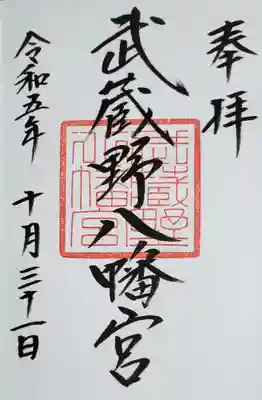 奉拝
武蔵野八幡宮
令和五年 十月三十一日
武蔵野八幡宮